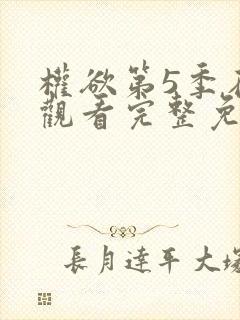 權欲第5季
觀看完整免
長月達平大塚